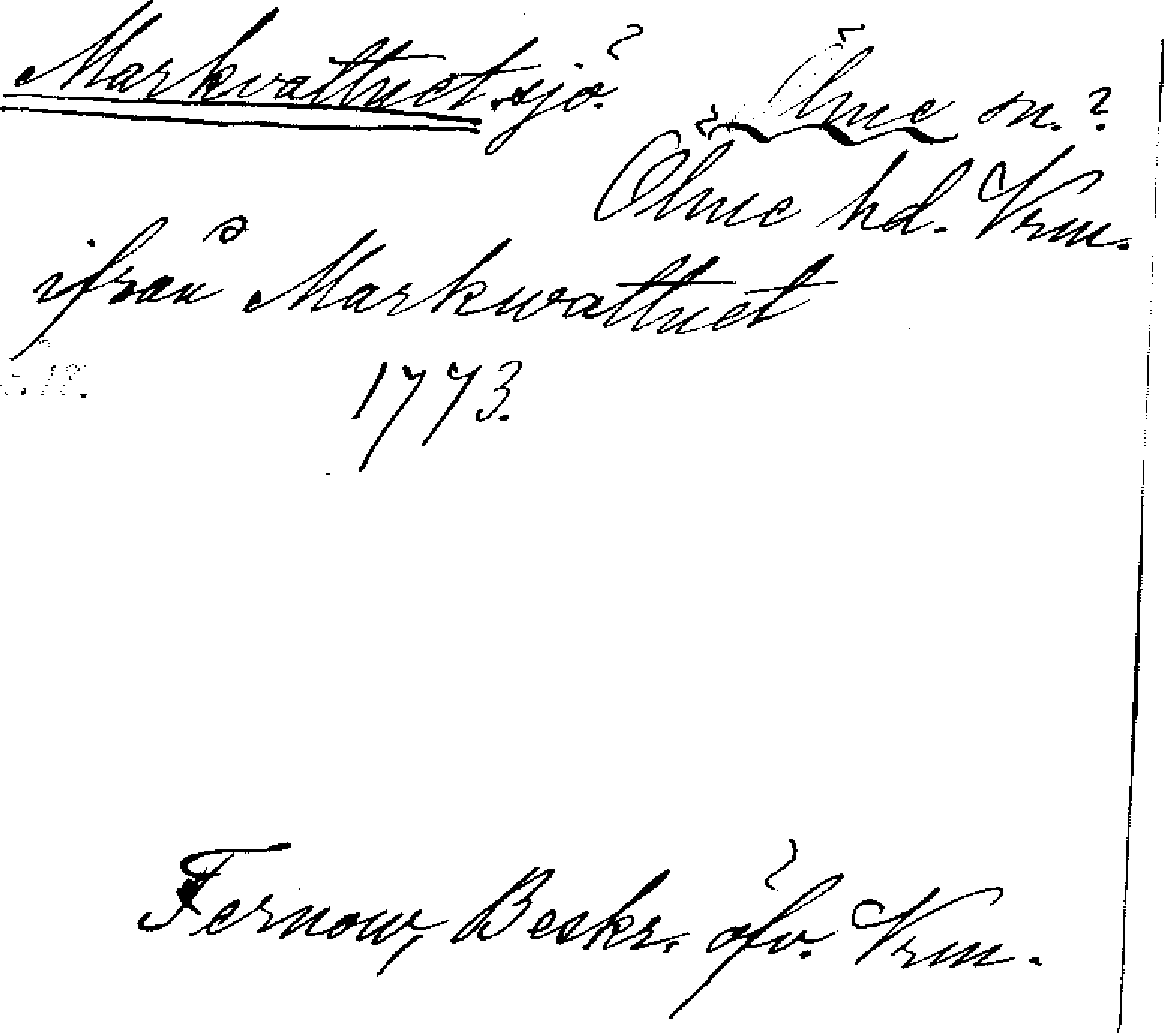 Markvattnet sjö. Ölme sn.?
Ölme hd. Vrm.
ifrån Markwattnet
1773.
Fernow, Beskr. öfv. Vrm.